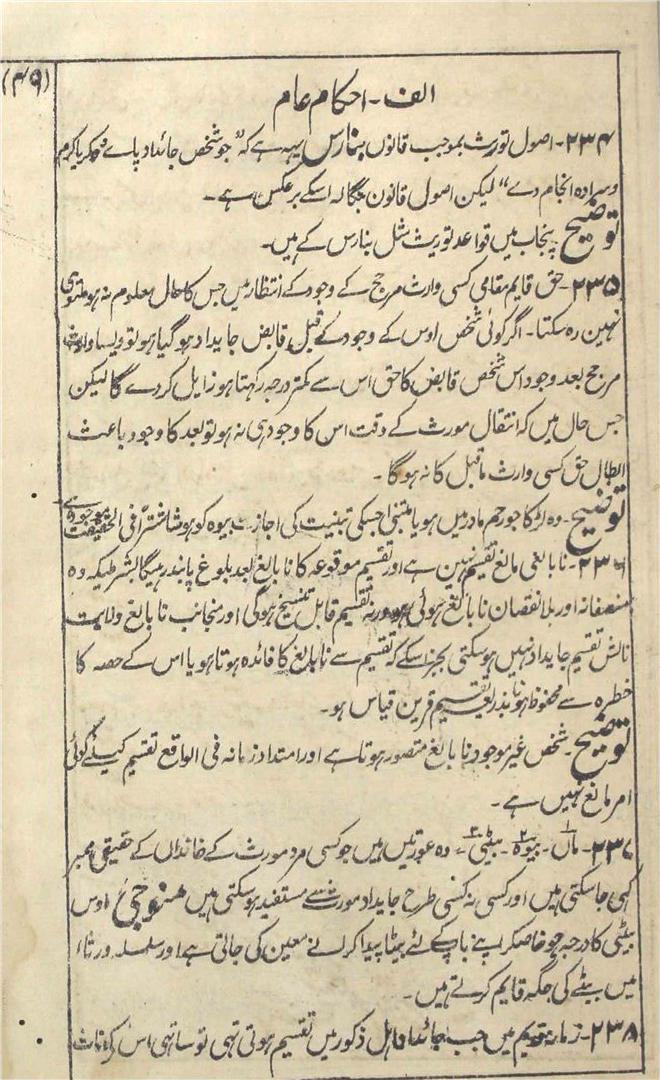 (۴۹)
الف - احکام عام
۲۳۴- اصول توریث بموجب قانون بنارس یہہ ہے کہ "جو شخص جائداد پاے وہ کریا کرم
وسرادہ انجام دے" لیکن اصول قانون بنگالہ اسکے برعکس ہے -
توضیح پنجاب میں قواعد توریث مثل بنارس کے ہیں-
۲۳۵- حق قایم مقامی کسی وارث مرجح کے وجود کے انتظار میں جس کا حال معلوم نہ ہو ملتوی
نہین رہ سکتا - اگر کوئی شخص اوس کے وجود کے قبل قابض جایداد ہو گیا ہو تو ویسا وارث
مرجح بعد وجود اس شخص قابض کا حق اس سے کمتر درجہ رکہتا ہو زایل کر دے گا لیکن
جس حال میں کہ انتقال مورث کے وقت اس کا وجود ہی نہ ہو تو بعد کا وجود باعث
ابطال حق کسی وارث ماقبل کا نہ ہوگا -
توضیح - وہ لڑکا جو رحم مادر میں ہو یا متبنٰی جسکی تبنیت کی اجازت بیوہ کو ہو شاشتراً فی الحقیقت موجود ہے
۲۳۶- نابالغی مانع تقسیم نہین ہے اور تقسیم موقوعہ کا نابالغ بعد بلوغ پابند رہیگا بشرطیکہ وہ
منصفانہ اور بلا نقصان نابالغ ہوئی ہو ورنہ تقسیم قابل تنسیخ ہوگی اور منجانب نابالغ ولایت
نالش تقسیم جایداد نہیں ہو سکتی بجز اسکے کہ تقسیم سے نابالغ کا فائدہ ہوتا ہو یا اس کے حصہ کا
خطرہ سے محفوظ ہونا بذریعہ تقسیم قرین قیاس ہو -
توضیح - شخص غیر موجود نابالغ متصور ہوتا ہے اور امتداد زمانہ فی الواقع تقسیم کیلئے کوئی
امر مانع نہیں ہے -
۲۳۷- ماں۱ - بیوہ۲ - بیٹی۳ - وہ عورتیں ہیں جو کسی مرد مورث کے خاندان کے حقیقی ممبر
کہی جا سکتی ہیں اور کسی نہ کسی طرح جایداد مورث سے مستفید ہو سکتی ہیں منوجی اوس
بیٹی کا درجہ جو خاصکر اپنے باپ کے لئے بیٹا پیدا کرانے معین کی جاتی ہے اور سلسلہ ورثاء
میں بیٹے کی جگہ قایم کرتے ہیں -
۲۳۸- زمانہ قدیم میں جب جائداد اہل ذکور میں تقسیم ہوتی تہی تو ساتہی اس کے اناث